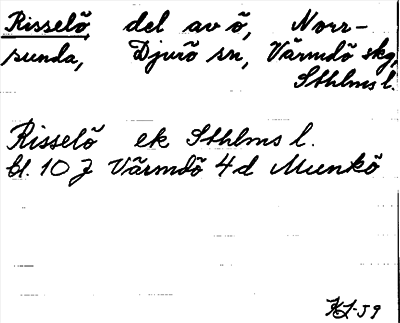 Risselö, del av ö, Norr-
sunda, Djurö sn, Värmdö skg,
Sthlms l.
Risselö ek Sthlms l.
bl. 10 J Värmdö 4d Munkö
KL-59